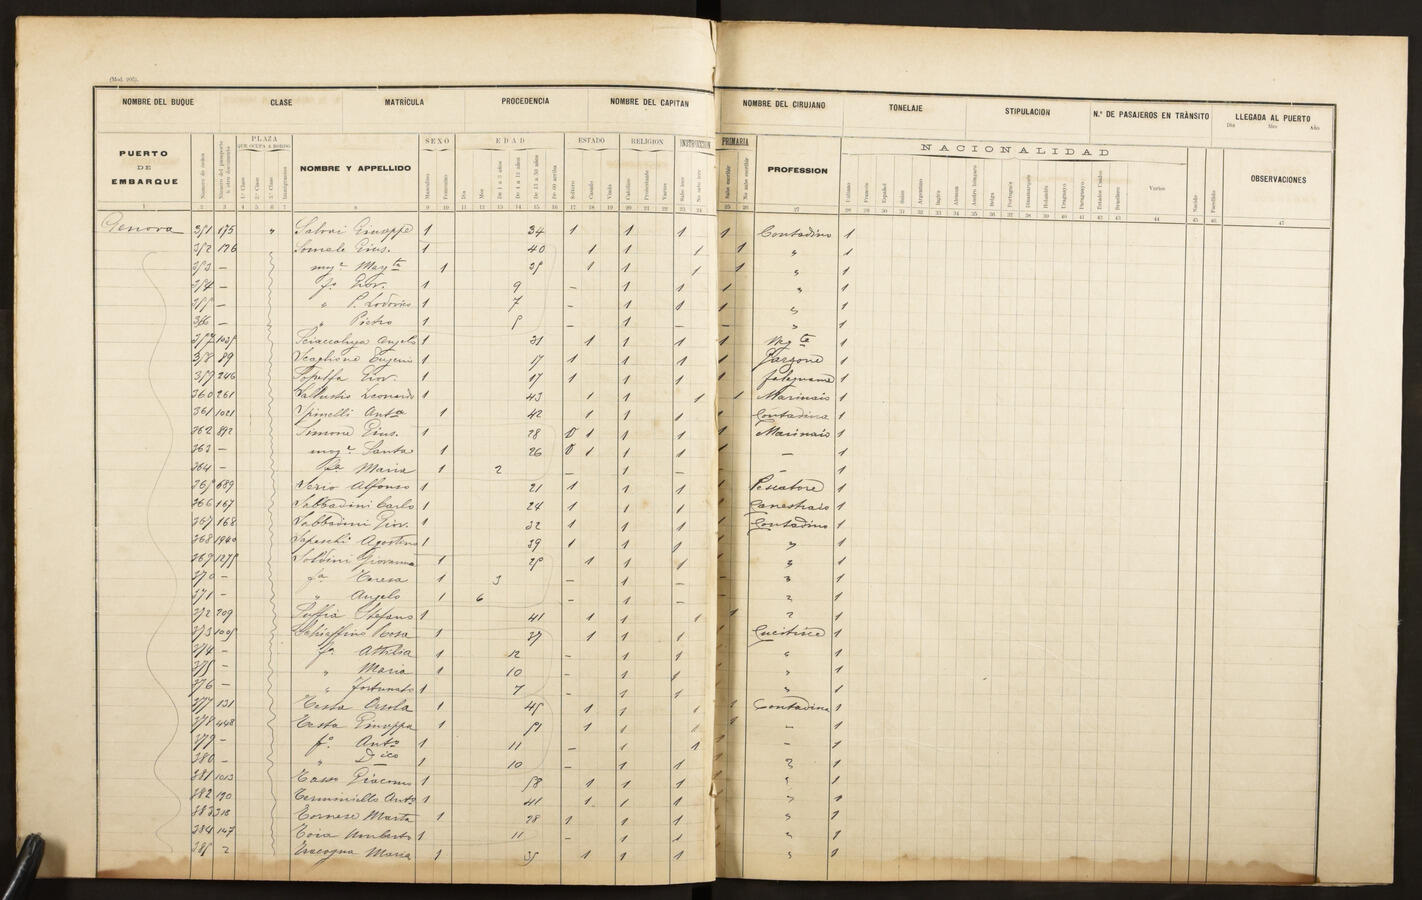 (Mod. 205).
NOMBRE DEL BUQUE CLASE MATRÍCULA PROCEDENCIA NOMBRE DEL CAPITAN NOMBRE DEL CIRUJANO TONELAJE STIPULACION N.º DE PASAJEROS EN TRÀNSITO LLEGADA AL PUERTO
Dia Mes Año
PUERTO DE EMBARQUE Número de orden PLAZA QUE OCUPA A BORDO 1.ª Clase 2.ª Clase 3.ª Clase Inmigrantes NOMBRE Y APPELLIDO SEXO Masculino Femenino EDAD Dia Mes De 1 a 3 años De 4 a 12 años De 13 a 50 años De 60 arriba ESTADO Soltero Casado Viudo RELIGION Católico Protestante Varios INSTRUCCION PRIMARIA Sabe leer No sabe leer Sabe escribir No sabe escribir PROFESSION NACIONALIDAD Italiano Francés Español Suizo Argentino Inglés Aleman Austro húngaro Belga Portugués Dinamarqués Holandés Uruguayo Paraguayo Estados Unidos Brasilero Varios Nacido Fallecido OBSERVACIONES
Genova 351 175 " Salvai Giuseppe 1 34 1 1 1 1 Contadino 1
352 176 Somale Gius. 1 40 1 1 1 1 " 1
353 – mog.e Marg.ta 1 35 1 1 1 1 " 1
354 – f.o Giov. 1 9 – 1 1 1 " 1
355 – " P. Lodovico 1 7 – 1 1 1 " 1
356 – " Pietro 1 5 – 1 – – " 1
357 1035 Sciaccaluga Angelo 1 31 1 1 1 1 1
358 89 Scaglione Eugenio 1 17 1 1 1 1 Garzone 1
359 246 Giov. 1 17 1 1 1 1 falegname 1
360 261 Leonardo 1 43 1 1 1 1 Marinaio 1
361 1021 Spinelli Ant.a 1 42 1 1 1 1 Contadina 1
362 892 Simone Gius. 1 28 1 1 1 1 Marinaio 1
363 – mog.e Santa 1 26 1 1 1 1 – 1
364 – f.a Maria 1 2 – 1 – – – 1
365 689 Serio Alfonso 1 21 1 1 1 1 Pescatore 1
366 167 Sabbadini Carlo 1 24 1 1 1 1 Canestraio 1
367 168 Sabbadini Giov. 1 32 1 1 1 1 Contadino 1
368 1940 Agostino 1 39 1 1 1 1 " 1
369 1275 Soldini Giovanna 1 25 1 1 1 1 " 1
370 – f.a Teresa 1 3 – 1 – – " 1
371 – " Angelo 1 6 – 1 – – " 1
372 209 Stefano 1 41 1 1 1 1 " 1
373 1005 Schiaffino Rosa 1 37 1 1 1 1 Cucitrice 1
374 – f.a Attilia 1 12 – 1 1 1 " 1
375 – " Maria 1 10 – 1 1 1 " 1
376 – " Fortunato 1 7 – 1 1 1 " 1
377 131 Testa Orsola 1 45 1 1 1 1 Contadina 1
378 448 Testa Giuseppa 1 51 1 1 1 1 – 1
379 – f.o Ant.o 1 11 – 1 1 1 – 1
380 – " D.ico 1 10 – 1 1 1 " 1
381 1013 Tasso Giacomo 1 58 1 1 1 1 " 1
382 190 Terminiello Ant.o 1 41 1 1 1 1 " 1
383 318 Tornese Marta 1 28 1 1 1 1 " 1
384 147 Umberto 1 11 – 1 1 1 " 1
385 2 Maria 1 35 1 1 1 1 " 1